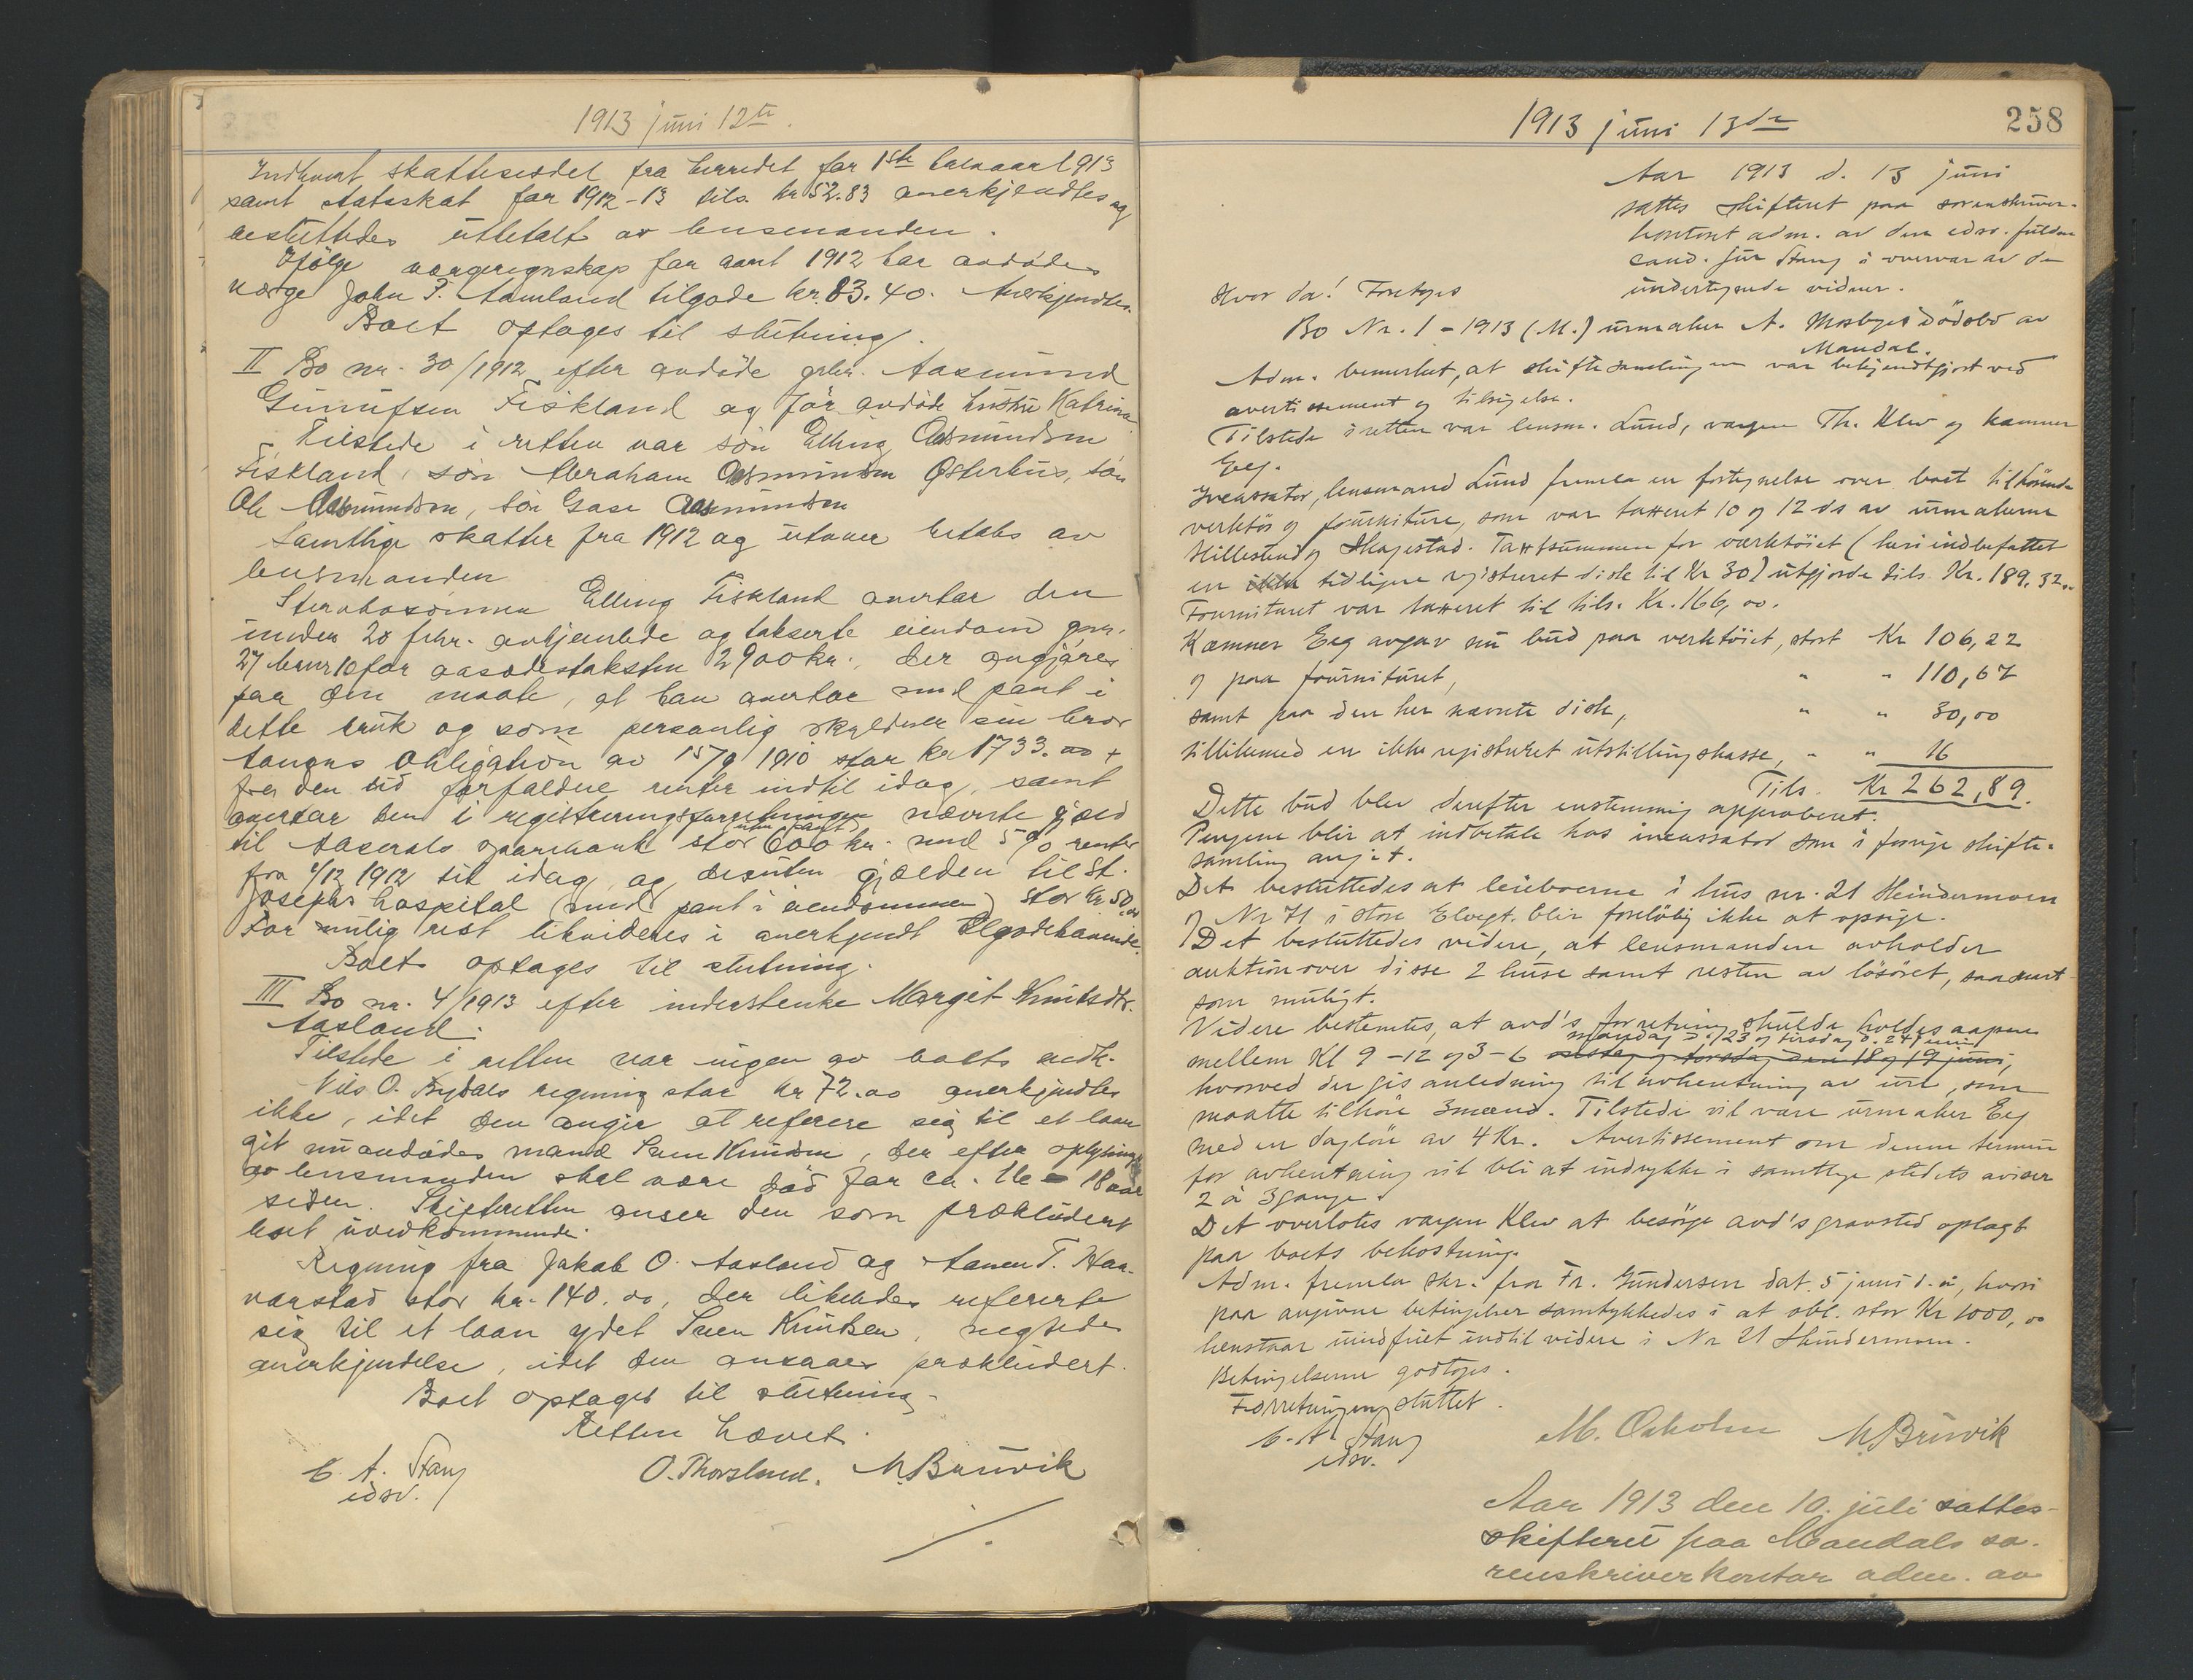 1913 juni 12te
Indkomst skatteseddel fra herredet for 1ste halvaar 1913
samt statsskat for 1912-13 tils. kr 52.83 anerkjendtes og
besluttedes utbetalt av lensmanden.
Ifölge vergeregnskap for aaret 1912 har avdödes
verge John T. Aamland tilgode kr. 83.40. Anerkjendtes.
Boet optages til slutning.
II Bo nr. 30/1912 efter avdöde gbr. Aasmund
Gunufsen Fiskland og för avdöde hustru Katrine
Tilstede i retten var sön Elling Aasmundsen
Fiskland, sön Abraham Aasmundsen Osterhus, sön
Ole Aasmundsen, sön Gase Aasmundsen
Samtlige skatter fra 1912 og utover betales av
lensmanden
Sterbosönnen Elling Fiskland overtar den
under 20 febr. avhjemlede og takserte eiendom gnr.
27 bnr 10 for aasædestaksten 2900 kr., der avgjöres
paa den maate, at han overtar med pant i
dette bruk og som personlig skyldner sin bror
Tangens obligation av 15/9 1910 stor kr 1733.00 +
fra den tid forfaldne renter indtil idag, samt
overtar den i registreringsforretningen nævnte gjæld
til Aaserals sparebank stor (uten pant) 600 kr. med 5% renter
fra 4/12 1912 til idag, og desuten gjælden til St.
Josephs hospital (med pant i eiendommen) stor kr 50.00
For mulig rest likvideres i anerkjendt tilgodehavende.
Boet optages til slutning.
III Bo nr. 4/1913 efter inderstenke Margit Knutsdtr.
Aasland.
Tilstede i retten var ingen av boets vedk.
Nils O. Rydals regning stor kr 72.00 anerkjendtes
ikke, idet den angir at referere sig til et laan
git nu avdödes mand Sven Knudsen, der efter oplysning
av lensmanden skal være död for ca. 16 - 18 aar
siden. Skifteretten anser den som prækludert
boet uvedkommende.
Regning fra Jakob O. Aasland og Aanen T. Haa-
varstad stor kr. 140.00, der likeledes refererte
sig til et laan ydet Sven Knutsen, negtedes
anerkjendelse, idet den ansaaes prækludert.
Boet optages til slutning.
Retten hævet.
C. A. Stang
edsv.
O. Thorslund. N. Bruvik
1913 juni 13de
258
Aar 1913 d. 13 juni
sattes skifteret paa sorenskriver-
kontoret adm. av den edsv. fuldm
cand. jur Stang i overvær av de
undertegnede vidner.
Hvor da! Foretoges
Bo Nr. 1 - 1913 (M.) urmaker A. Mosbyes dödsbo av
Mandal.
Adm. bemerket, at skiftesamlingen var bekjendtgjort ved
avertissement og tilsigelse.
Tilstede i retten var lensm. Lund, vergen Th. Klev og kæmner
Eeg.
Incassator, lensmand Lund fremla en fortegnelse over boet tilhörende
verktöi og fournituere, som var taxeret 10 og 12 ds av urmakerne
Hillestad og Skagestad. Taxtsummen for værktöiet (heri indbefattet
en ikke tidligere registreret disk til Kr 30) utgjorde tils. Kr. 189.32.
Fournituret var taxeret til tils. Kr. 166,00.
Kæmner Eeg avgav nu bud paa verktöiet, stort Kr 106,22
og paa fournituret, " " 110,67
samt paa den her nævnte disk, " " 30,00
tillikemed en ikke registreret utstillingskasse, " " 16
Tils. Kr 262,89.
Dette bud blev derefter enstemmig approberet.
Pengene blir at indbetale hos incassator som i forrige skifte-
samling angit.
Det besluttedes at leieboerne i hus nr. 21 Skindermoen
og Nr 71 i store Elvegt. blir foreløbig ikke at opsige.
Det besluttedes videre, at lensmanden avholder
auktion over disse 2 huse samt resten av lösöret, saa snart
som muligt.
Videre bestemtes, at avd's forretning skulde holdes aapen
mandag d. 23 og tirsdag d. 24 juni
mellem Kl 9-12 og 3-6 onsdag og torsdag den 18 og 19 juni,
hvorved der gis anledning til avhentning av ure, som
maatte tilhöre 3mænd. Tilstede vil være urmaker Eeg
med en daglön av 4 Kr. Avertissement om denne termin
for avhentning vil bli at indrykke i samtlige stedets aviser
2 à 3 gange.
Det overlotes vergen Klev at besörge avd's gravsted oplagt
paa boets bekostning.
Adm. fremla skr. fra Fr. Gundersen dat. 5 juni d. å, hvori
paa angivne betingelser samtykkedes i at obl. stor Kr 1000,00
henstaar uindfriet indtil videre i Nr 21 Skindermoen.
Betingelserne godtoges.
Forretningen sluttet.
C. A. Stang
edsv.
M. Oxholm N. Bruvik
Aar 1913 den 10. juli sattes
skifteret paa Mandals so-
renskriverkontor adm. av